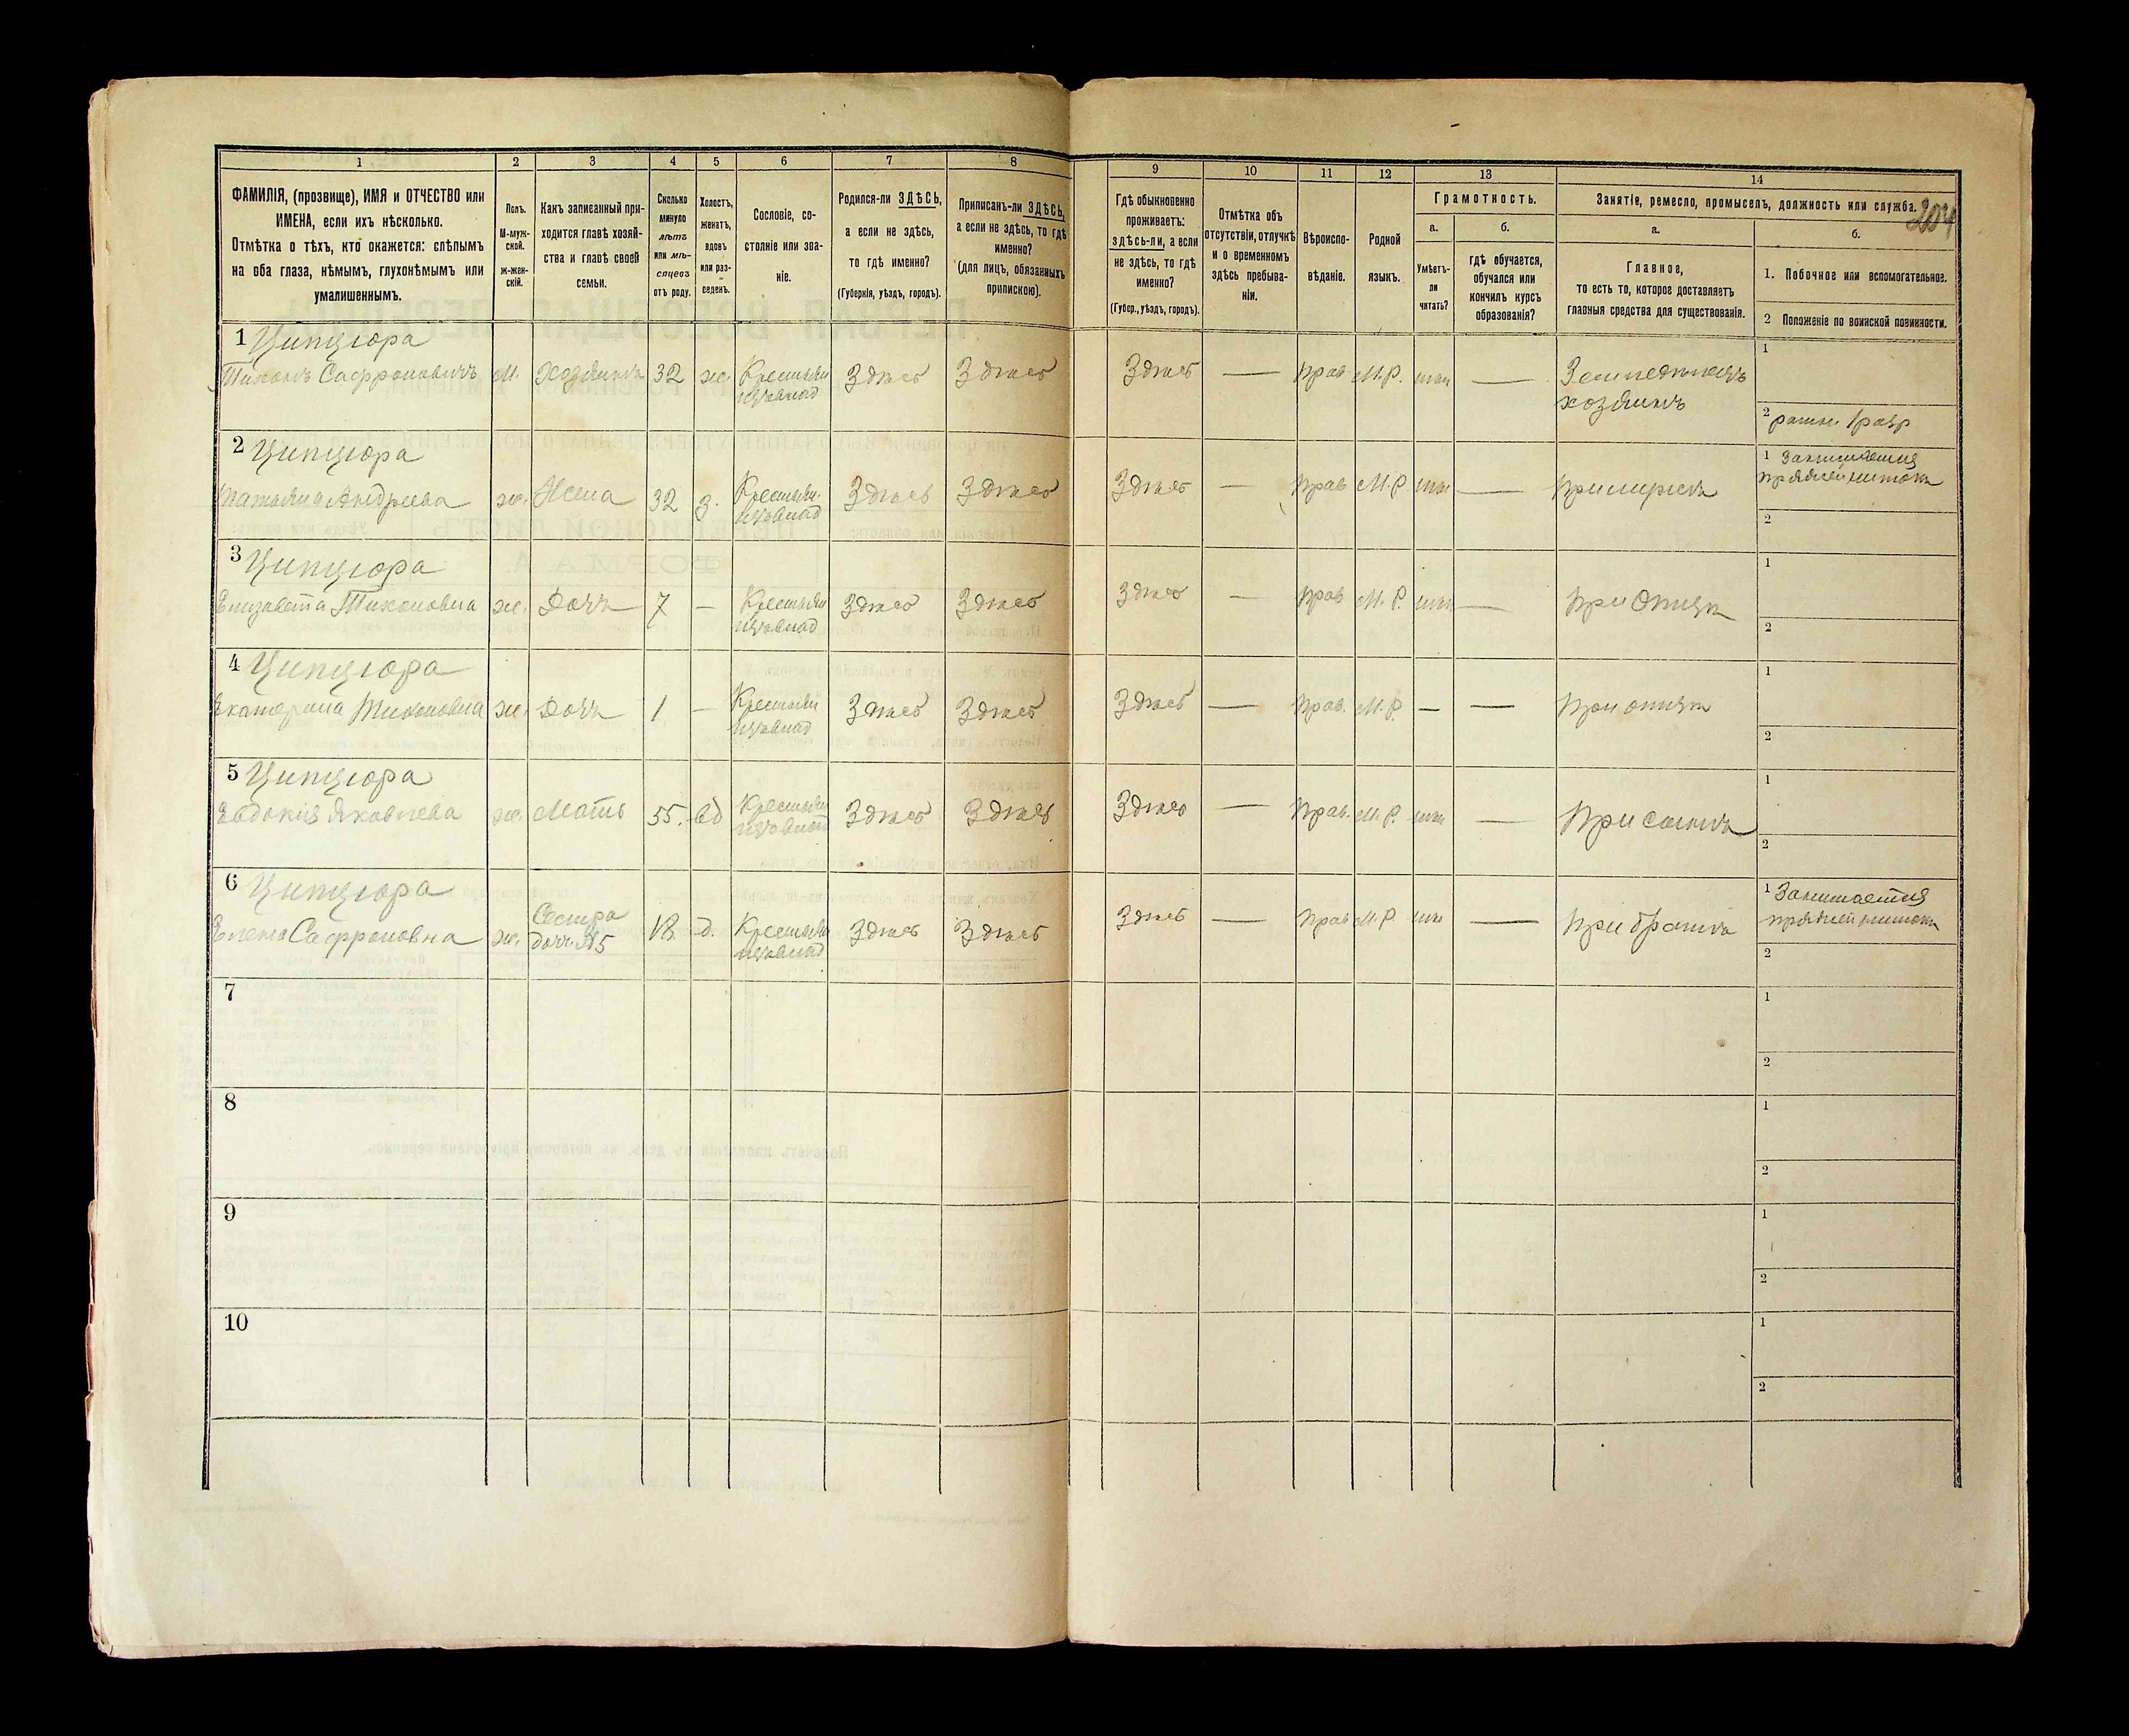 1 2 3 4 5 6 7 8 9 10 11 12 13 14
ФАМИЛІЯ, (прозвище), ИМЯ и ОТЧЕСТВО или
ИМЕНА, если ихъ нѣсколько.
Отмѣтка о тѣхъ, кто окажется: слѣпымъ
на оба глаза, нѣмымъ, глухонѣмымъ или
умалишеннымъ.
Полъ.
М-муж-
ской.
ж-жен-
скій.
Какъ записанный при-
ходится главѣ хозяй-
ства и главѣ своей
семьи.
Сколько
минуло
лѣтъ
или мѣ-
сяцевъ
отъ роду.
Холостъ,
женатъ,
вдовъ
или раз-
веденъ.
Сословіе, со-
стояніе или зва-
ніе.
Родился-ли ЗДѢСЬ,
а если не здѣсь,
то гдѣ именно?
(Губернія, уѣздъ, городъ).
Приписанъ-ли ЗДѢСЬ,
а если не здѣсь, то гдѣ
именно?
(для лицъ, обязанныхъ
припискою).
Гдѣ обыкновенно
проживаетъ:
здѣсь-ли, а если
не здѣсь, то гдѣ
именно?
(Губер., уѣздъ, городъ).
Отмѣтка объ
отсутствіи, отлучкѣ
и о временномъ
здѣсь пребыва-
ніи.
Вѣроиспо-
вѣданіе.
Родной
языкъ.
Грамотность.
а.
Умѣетъ-
ли
читать?
б.
гдѣ обучается,
обучался или
кончилъ курсъ
образованія?
Занятіе, ремесло, промыселъ, должность или служба.
204
а.
Главное,
то есть то, которое доставляетъ
главныя средства для существованія.
б.
1. Побочное или вспомогательное.
2 Положеніе по воинской повинности.
1 Ципцюра
Тихонъ Сафроновичъ м. Хозяинъ 32 ж. Крестьян Здѣсь Здѣсь Здѣсь — Прав М.Р. нѣт — Земледѣлецъ
изъ влад
хозяинъ
1
2 ратн. 1 разр
2 Ципцюра
Татьяна Андреева ж. Жена 32 з. Крестьян. Здѣсь Здѣсь Здѣсь — Прав М.Р нѣт —
изъ влад
1 Занимается
пряжей нитокъ
2
3 Ципцюра
Елизавета Тихоновна ж. Дочь 7 — Крестьян Здѣсь Здѣсь Здѣсь — Прав М.Р. нѣт — При отцѣ
изъ влад
1
2
4 Ципцюра
Екатерина Тихоновна ж. Дочь 1 — Крестьян Здѣсь Здѣсь Здѣсь — Прав. М.Р. — — При отцѣ
изъ влад
1
2
5 Ципцюра
Евдокія Яковлева ж. Мать 55. вд Крестьян Здѣсь Здѣсь Здѣсь — Прав. М.Р. нѣт — При сынѣ
изъ влад
1
2
6 Ципцюра
Сестра
Елена Сафроновна ж. дочь №5 18 д. Крестьян Здѣсь Здѣсь Здѣсь — Прав М.Р нѣт — При братѣ
изъ влад
1 Занимается
пряжей нитокъ
2
7
1
2
8
1
2
9
1
2
10
1
2